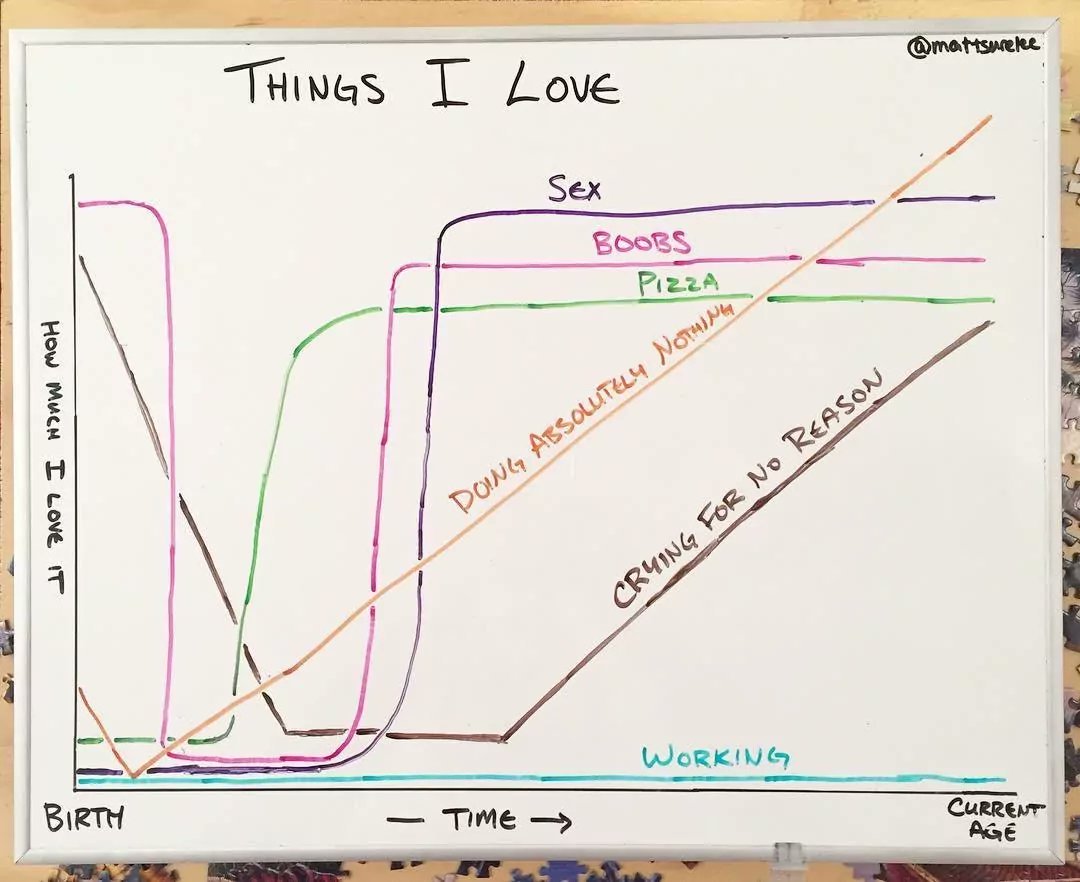 @mattsurelee
THINGS I LOVE
SEX
BOOBS
PIZZA
DOING ABSOLUTELY NOTHING
CRYING FOR NO REASON
HOW MUCH I LOVE IT
WORKING
BIRTH
— TIME →
CURRENT
AGE